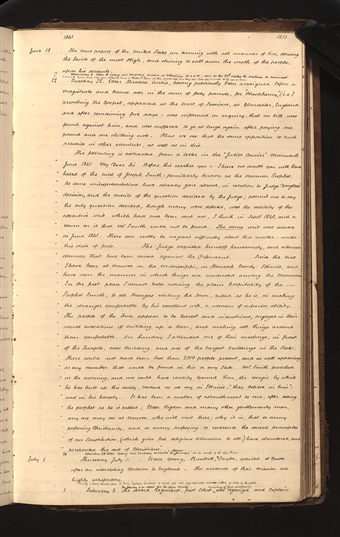 1841 1213
June 18 The news papers of the United States are teeming with all manner of lies, abusing
the Saints of the Most High, and striving to call down the wrath of the people,
upon his servants.
magistrate and bound over in the sum of forty pounds, for "Blasphemy," (i.e.)
preaching the Gospel, appeared at the Court of Sessions, at Gloucester, England,
and after remaining five days, was informed on enquiry, that no bill was
found against him, and was suffered to go at large again after paying one
pound and one shilling cost. Thus we see that the same opposition to truth
prevails in other countries, as well as in this.
The following is extracted from a letter in the "Juliet Courier" Monmouth
June 1841. My Dear Sir. Before this reaches you I have no doubt you will have
heard of the trial of Joseph Smith, familiarly known as the Mormon Prophet.
As some misrepresentations have already gone abroad, in relation to Judge Douglass'
decision, and the merits of the question decided by the Judge; permit me to say
the only question decided, though many were debated, was the validity of the
executive writ which had once been sent out, I think in Sept 1840, and a
return on it that Mr Smith could not be found. The same writ was issued
in June 1841. There can really be no great difficulty about this matter, under
this state of facts. The Judge acquitted himself handsomely, and silenced
clamors that had been raised against the Defendant. Since the trial
I have been at Nauvoo on the Mississippi, in Hancock County, Illinois, and
have seen the manner in which things are conducted among the Mormons.
In the first place I cannot help noticing the plain hospitality of the
Prophet Smith, to all strangers visiting the town, aided as he is, in making
the stranger comfortable by his excellent wife, a woman of superior ability.
The people of the town appear to be honest and industrious, engaged in their
usual avocations of building up a town, and making all things around
them comfortable. On Sunday I attended one of their meetings, in front
of the Temple, now building, and one of the largest buildings in the State.
There could not have been less than 2500 people present, and as well appearing
as any number that could be found in this or any State. Mr Smith preached
in the morning, and one could have readily learned then, the magic by which
he has built up this society, because as we say in Illinois, "they believe in him"
and in his honesty. It has been a matter of astonishment to me, after seeing
the prophet as he is called, Elder Rigdon and many other gentlemanly men,
any one may see at Nauvoo, who will visit there, why it is, that so many
professing Christianity, and so many professing to reverence the sacred principles
of our Constitution, (which gives free religious toleration to all,) have slandered, and
persecuted this sect of Christians.
July 1 Thursday July 1. Elders Young, Kimball, & Taylor, arrived at Nauvoo
after an interesting mission to England. The accounts of their mission are
highly satisfactory.
3 Saturday 3.